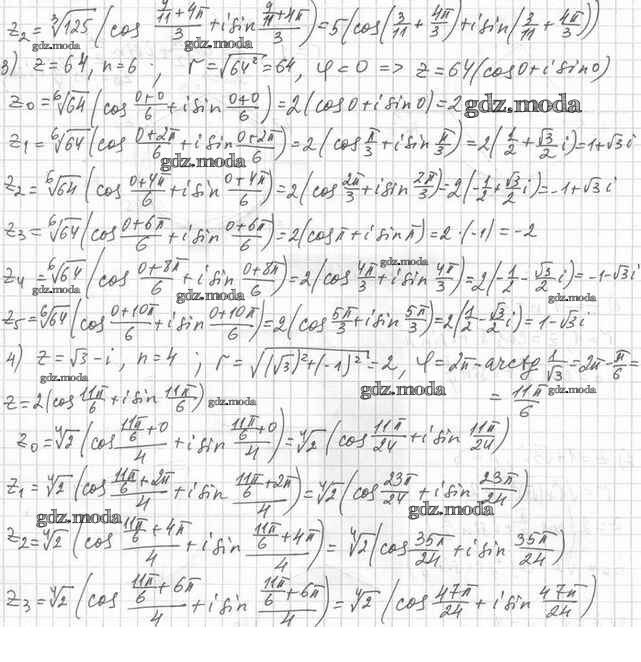 z₂ = ∛125 (cos (9/11 + 4π)/3 + i sin (9/11 + 4π)/3) = 5(cos(3/11 + 4π/3) + i sin(3/11 + 4π/3))
gdz.moda gdz.moda
3) z = 64, n = 6 ; r = √64² = 64, φ = 0 => z = 64(cos 0 + i sin 0)
z₀ = ⁶√64 (cos (0+0)/6 + i sin (0+0)/6) = 2(cos 0 + i sin 0) = 2 gdz.moda
z₁ = ⁶√64 (cos (0+2π)/6 + i sin (0+2π)/6) = 2(cos π/3 + i sin π/3) = 2(1/2 + √3/2 i) = 1 + √3 i
gdz.moda
z₂ = ⁶√64 (cos (0+4π)/6 + i sin (0+4π)/6) = 2(cos 2π/3 + i sin 2π/3) = 2(-1/2 + √3/2 i) = -1 + √3 i
z₃ = ⁶√64 (cos (0+6π)/6 + i sin (0+6π)/6) = 2(cos π + i sin π) = 2 · (-1) = -2
gdz.moda
z₄ = ⁶√64 (cos (0+8π)/6 + i sin (0+8π)/6) = 2(cos 4π/3 + i sin 4π/3) = 2(-1/2 - √3/2 i) = -1 - √3 i
gdz.moda gdz.moda gdz.moda
z₅ = ⁶√64 (cos (0+10π)/6 + i sin (0+10π)/6) = 2(cos 5π/3 + i sin 5π/3) = 2(1/2 - √3/2 i) = 1 - √3 i
4) z = √3 - i, n = 4 ; r = √((√3)² + (-1)²) = 2, φ = 2π - arctg 1/√3 = 2π - π/6 =
gdz.moda gdz.moda = 11π/6 gdz.moda
z = 2(cos 11π/6 + i sin 11π/6) gdz.moda
z₀ = ⁴√2 (cos (11π/6 + 0)/4 + i sin (11π/6 + 0)/4) = ⁴√2 (cos 11π/24 + i sin 11π/24)
z₁ = ⁴√2 (cos (11π/6 + 2π)/4 + i sin (11π/6 + 2π)/4) = ⁴√2 (cos 23π/24 + i sin 23π/24)
gdz.moda gdz.moda
z₂ = ⁴√2 (cos (11π/6 + 4π)/4 + i sin (11π/6 + 4π)/4) = ⁴√2 (cos 35π/24 + i sin 35π/24)
z₃ = ⁴√2 (cos (11π/6 + 6π)/4 + i sin (11π/6 + 6π)/4) = ⁴√2 (cos 47π/24 + i sin 47π/24)